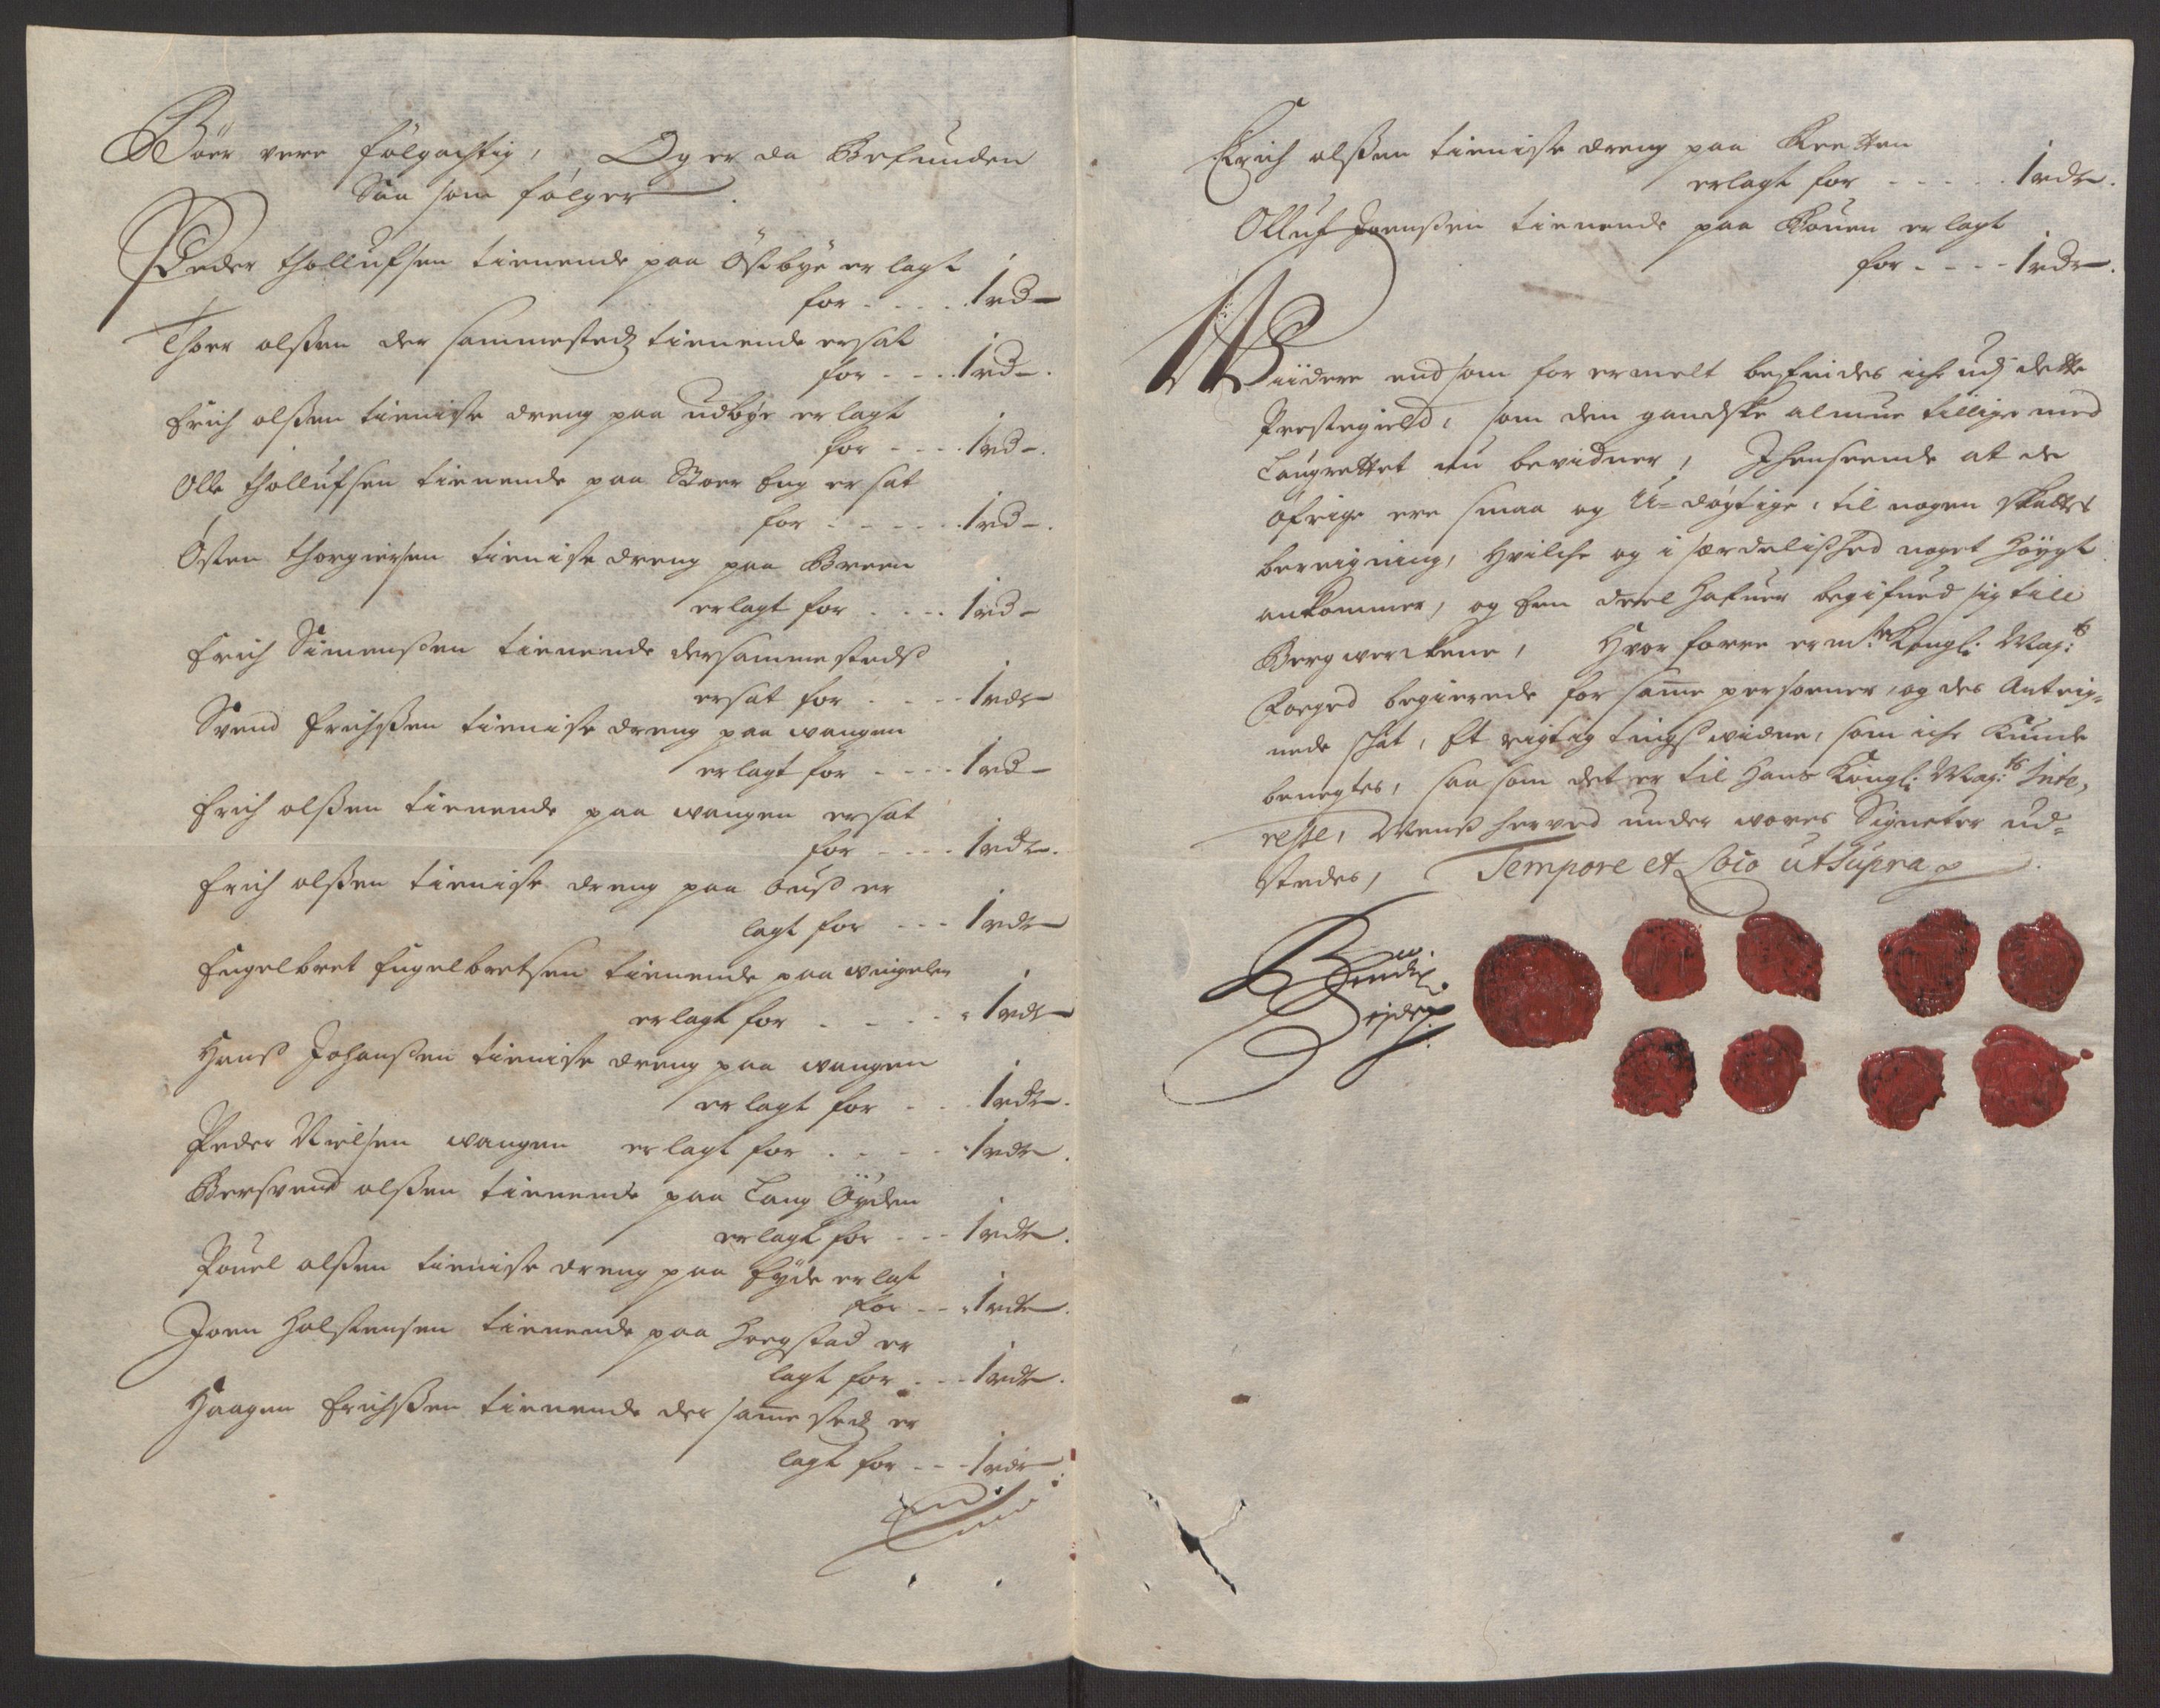 Böer være følgachtig, Og er da Befunden
Saa som følger
Peder Thollufsen tienende paa Östbye er lagt
for - - - - 1 rd -
Thoer olßen der sammestedz tienende ersat
for - - - 1 rd -.
Erich olßen tieniste dreng paa udbÿe er lagt
for - - - - 1 rd -.
Olle Thollufsen tienende paa Stoer Eng er sat
for - - - - - 1 rd -.
Östen Thorgiersen tieniste dreng paa Breen
erlagt for - - - - 1 rd -
Erich Simenßen tienende dersammestedß
ersat for - - - - 1 rdr
Svend Erichßen tieniste dreng paa wangen
erlagt for - - - - 1 rd -
Erich olßen tienende paa wangen ersat
for - - - - 1 rdr.
Erich olßen tieniste dreng paa Ouß er
lagt for - - - 1 rdr
Engelbret Engelbretsen tienende paa wigelen
er lagt for - - - - 1 rdr
Hanß Johanßen tieniste dreng paa wangen
er lagt for - - - 1 rdr.
Peder Nielsen wangen er lagt for - - - - 1 rdr.
Bersvend olßen tienende paa Lang Öyden
erlagt for - - - 1 rdr.
Pouel olßen tieniste dreng paa Eyde er lagt
for - - 1 rdr.
Joen Halstensen tienende paa Hregstad er
lagt for - - - 1 rdr.
Haagen Erichßen tienende der same stedz er
lagt for - - - 1 rdr
Erich olßen tieniste dreng paa Kretten
erlagt for - - - - - 1 rdr.
Olluf Joenßen tienende paa Kouen er lagt
for - - - - 1 rdr.
Wiidere end som for ermelt befindes iche udj dette
Prestegield, som den gandske almue tillige med
Laugrettet nu bevidner, Ihenseende at de
öfrige ere smaa og U=døgtige, til nogen skattes
bereigning, Hvilche og i særdelißhed noget höygt
ankommer, og Een deel Hafuer begifued sig till
Bergwerckene, Hvor forre er mte Kongl: Maj:ts
Foeged begierede for same persoener, og des Anteig-
nede schat, Et rigtig tingßwidne, som iche kunde
benegtes, saasom det er til Hans Kongl: Maj:ts Inte-
resse, Menß herved under wores Signeter ud-
stedes, Tempore et Loco utSupra